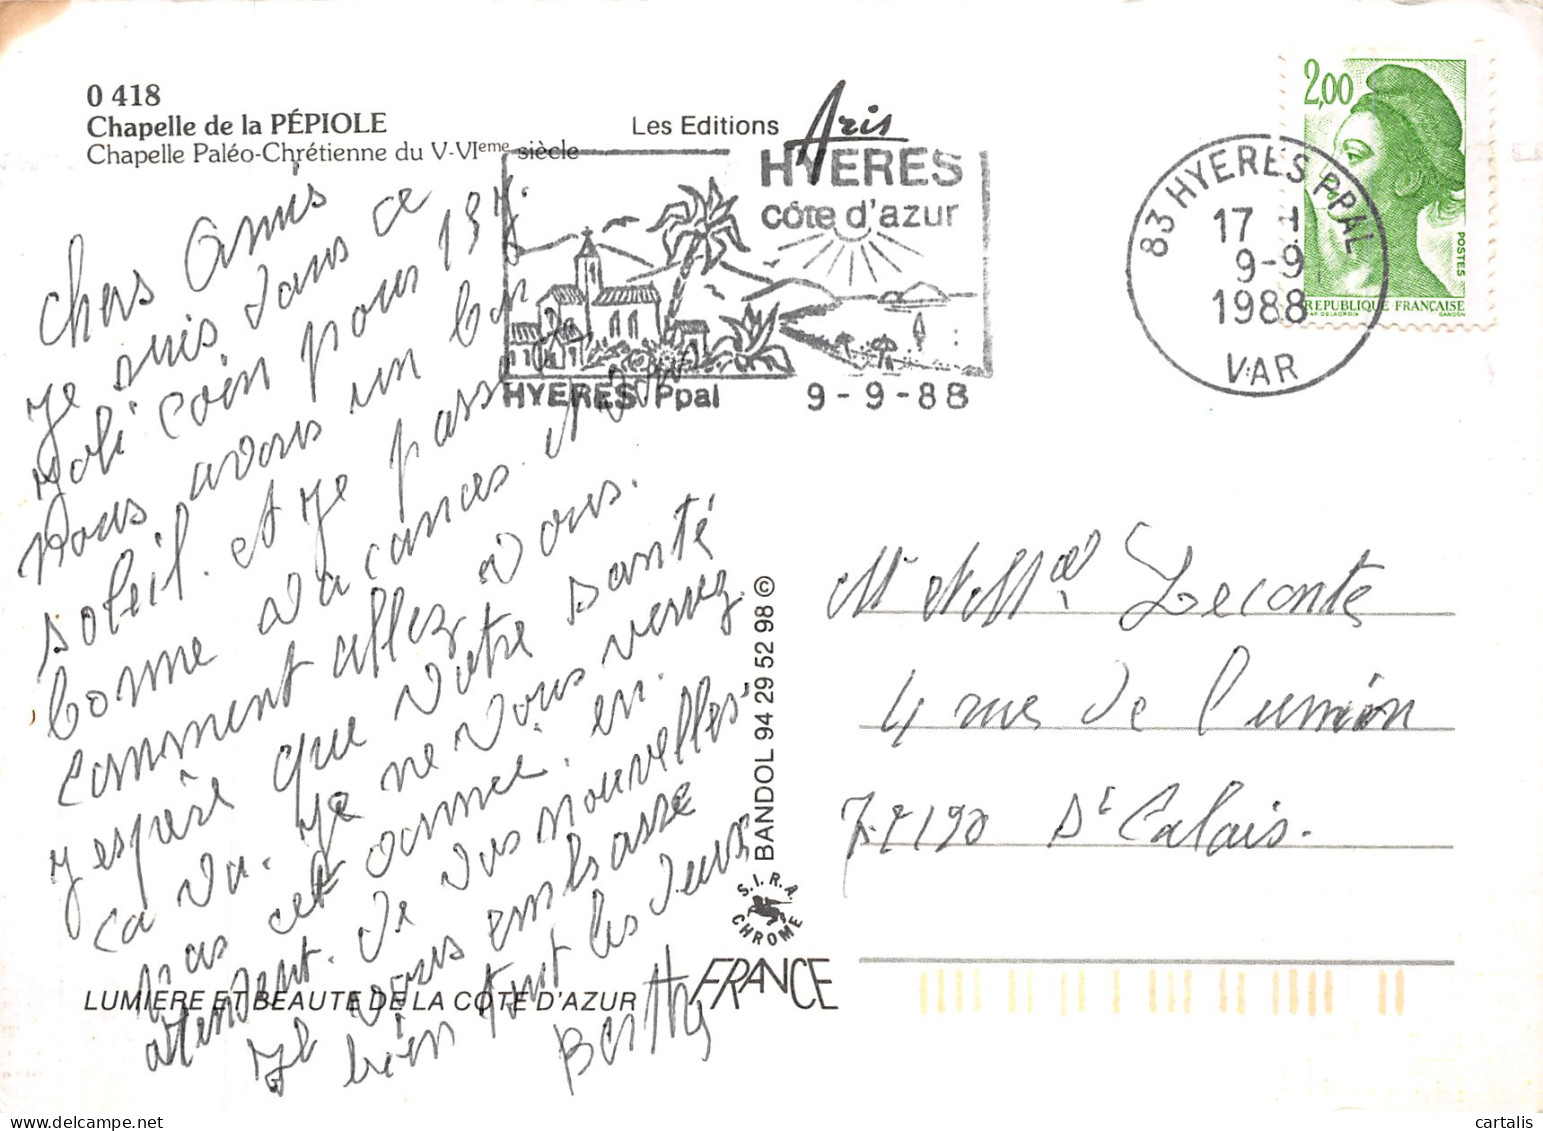 0 418
Chapelle de la PÉPIOLE
Chapelle Paléo-Chrétienne du V-VIeme siècle
Les Editions Aris
HYERES
côte d'azur
HYERES Ppal 9-9-88
83 HYERES PPAL
17 H
9-9
1988
VAR
2,00
POSTES
REPUBLIQUE FRANÇAISE
D'AP. DELACROIX GANDON
Chers Amis
Je suis dans ce
joli coin pour 13 j.
nous avons un bon
soleil. et je passe de
bonne vacances.
comment allez vous.
j'espère que votre santé
ca va. Je ne vous verrez
pas cet année. en
attendent. de vos nouvelles
Je vous embrasse
bien tout les deux
Berthe
M. et Mme Leconte
4 rue de l'union
72190 St Calais.
BANDOL 94 29 52 98 ©
S.I.R.A.
CHROME
FRANCE
LUMIERE ET BEAUTE DE LA COTE D'AZUR
cartalis